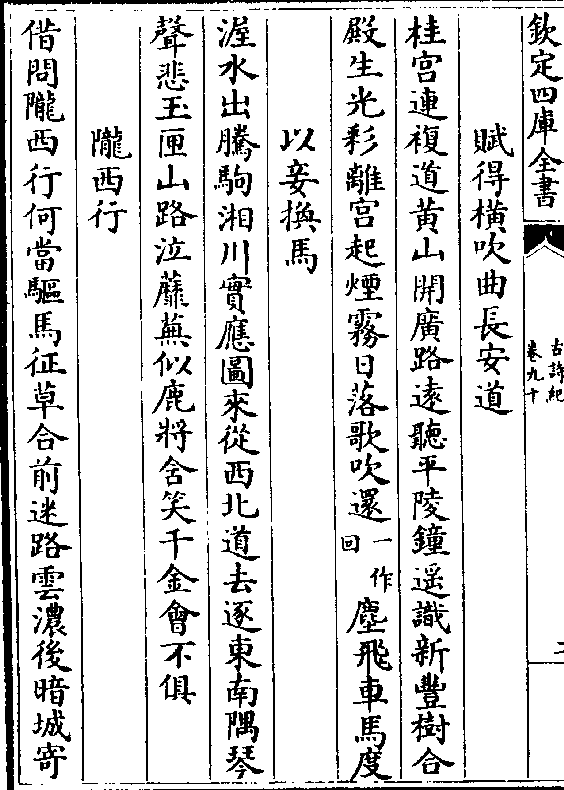 欽定四庫全書
古詩紀
卷九十
二
賦得橫吹曲長安道
桂宮連複道黃山開廣路遠聽平陵鐘遥識新豐樹合
殿生光彩離宮起煙霧日落歌吹還一作回塵飛車馬度
以妾換馬
渥水出騰駒湘川實應圖來從西北道去逐東南隅琴
聲悲玉匣山路泣蘼蕪似鹿將含笑千金會不俱
隴西行
借問隴西行何當驅馬征草合前迷路雲濃後暗城寄